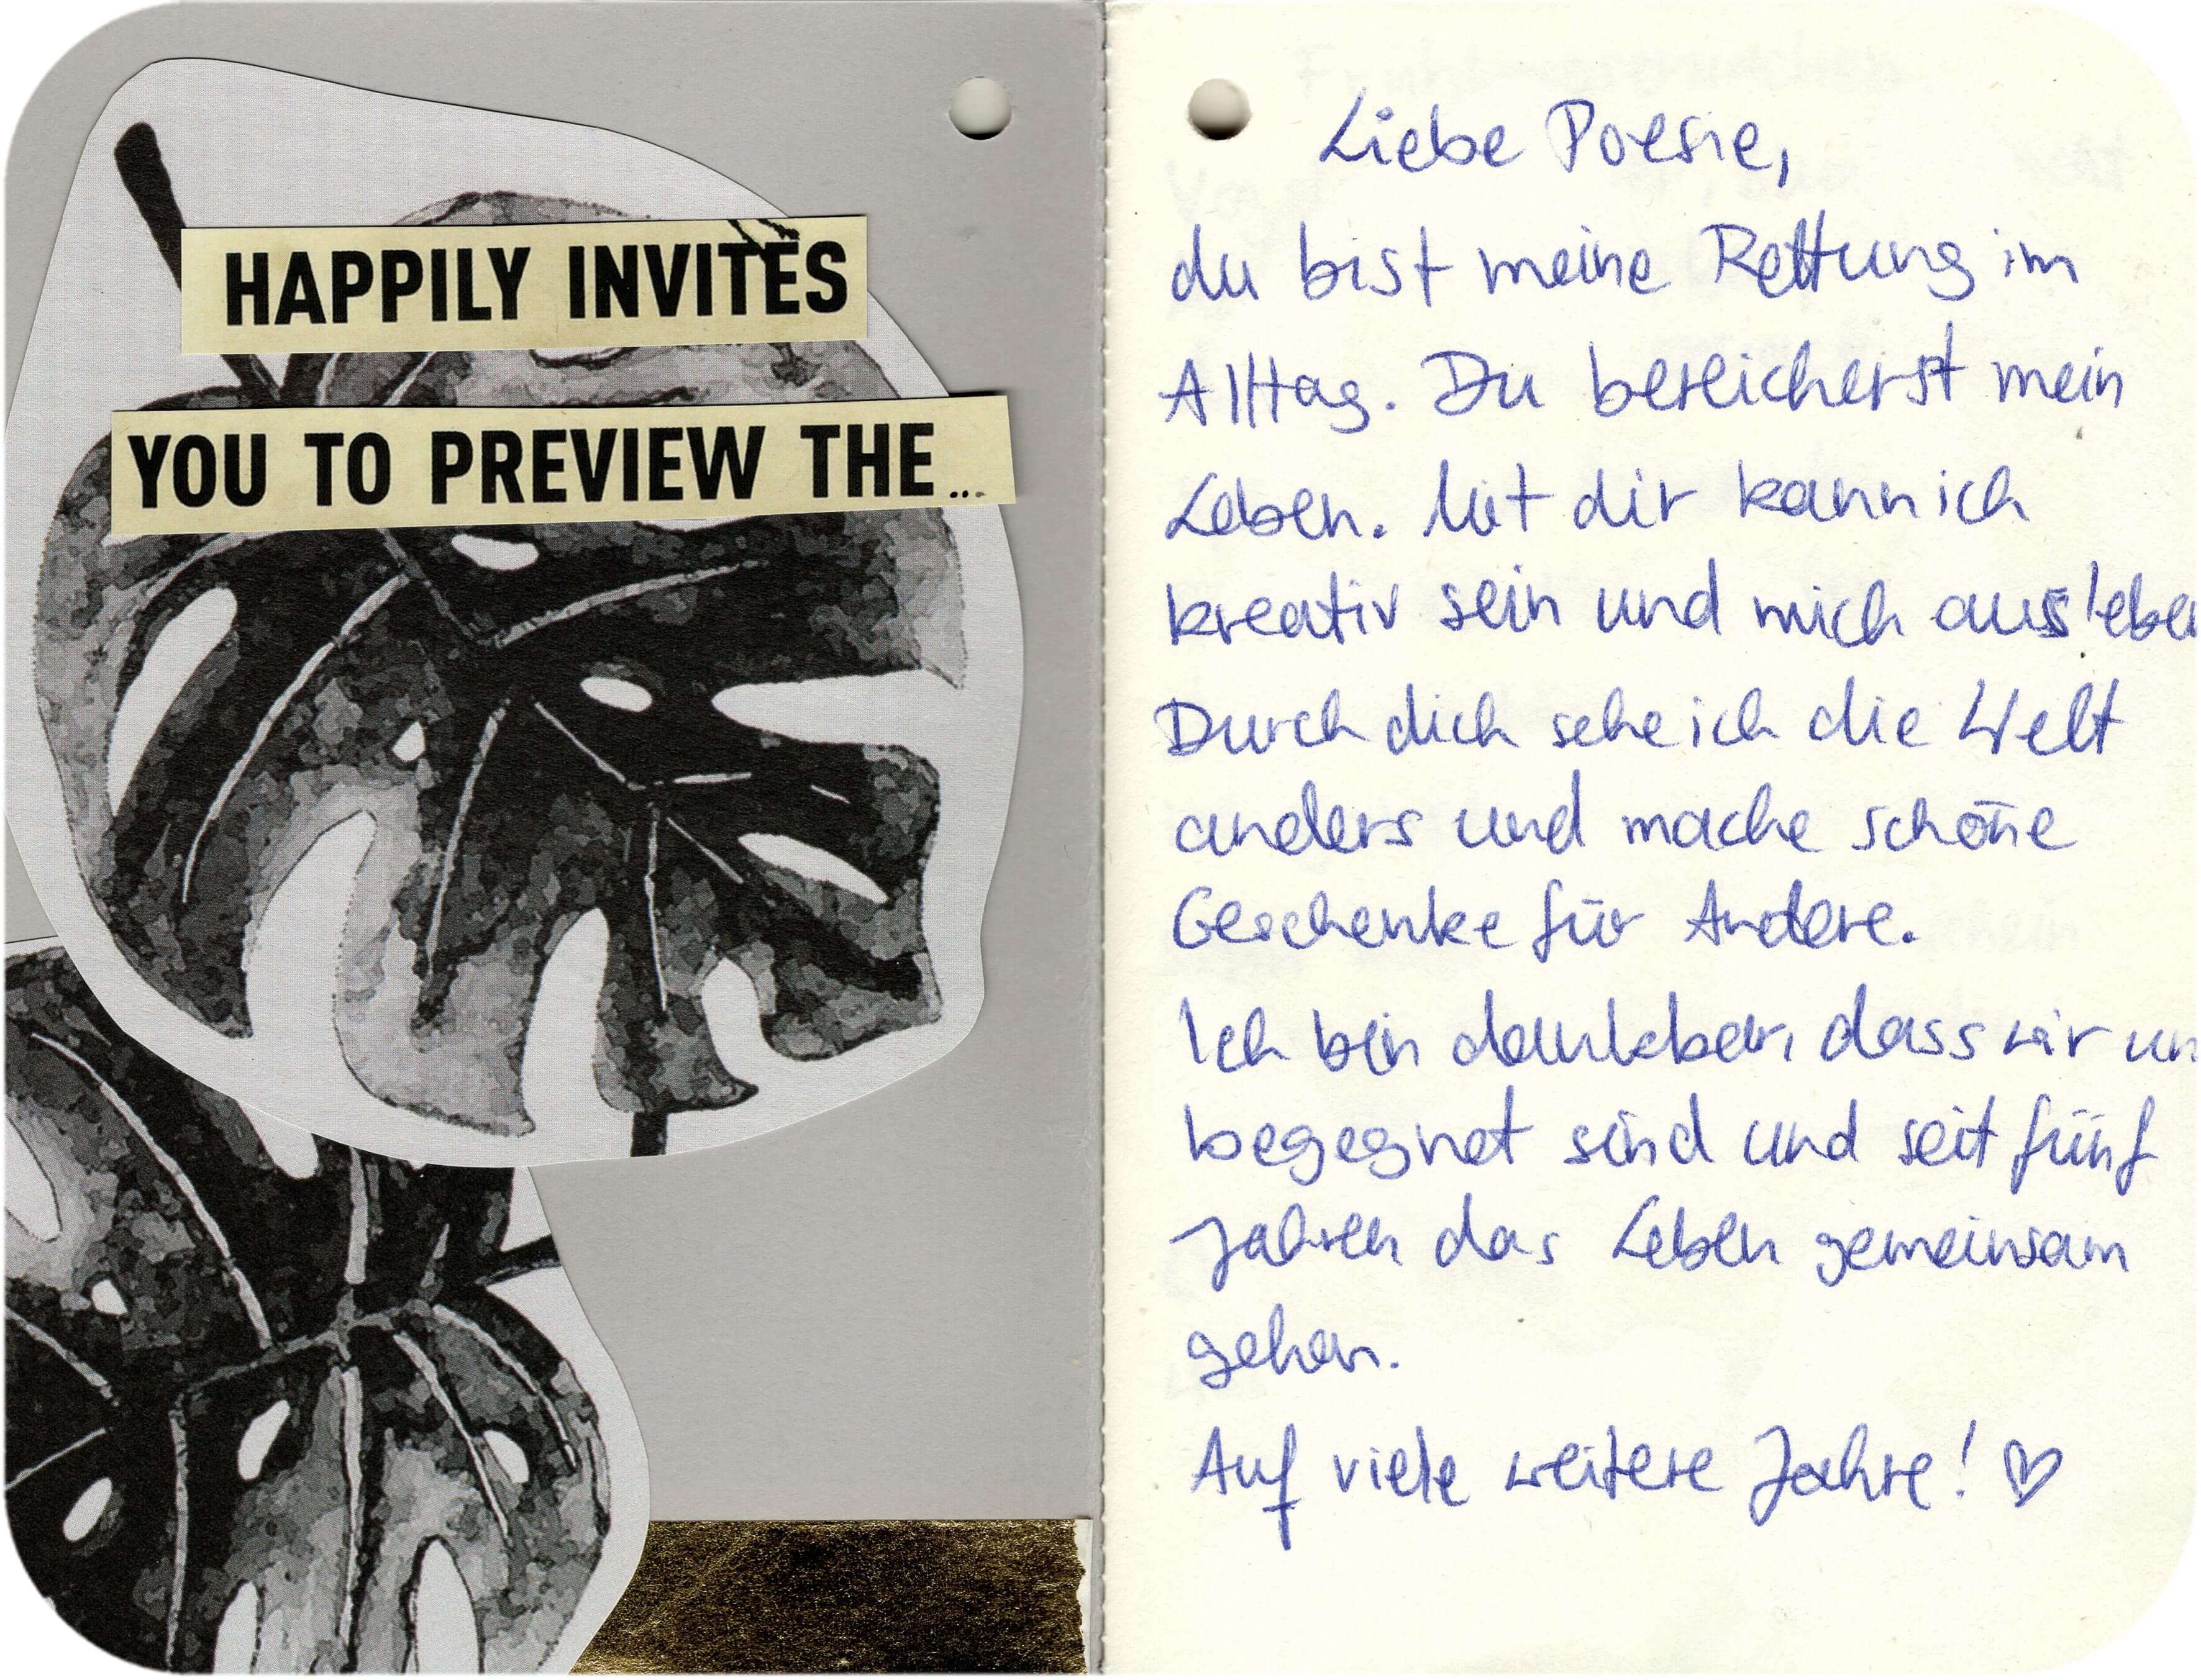 HAPPILY INVITES
YOU TO PREVIEW THE...
Liebe Poesie,
du bist meine Rettung im
Alltag. Du bereicherst mein
Leben. Mit dir kann ich
kreativ sein und mich ausleben
Durch dich sehe ich die Welt
anders und mache schöne
Geschenke für Andere.
Ich bin dankbar, dass wir un
begegnet sind und seit fünf
Jahren das Leben gemeinsam
gehen.
Auf viele weitere Jahre! ♡